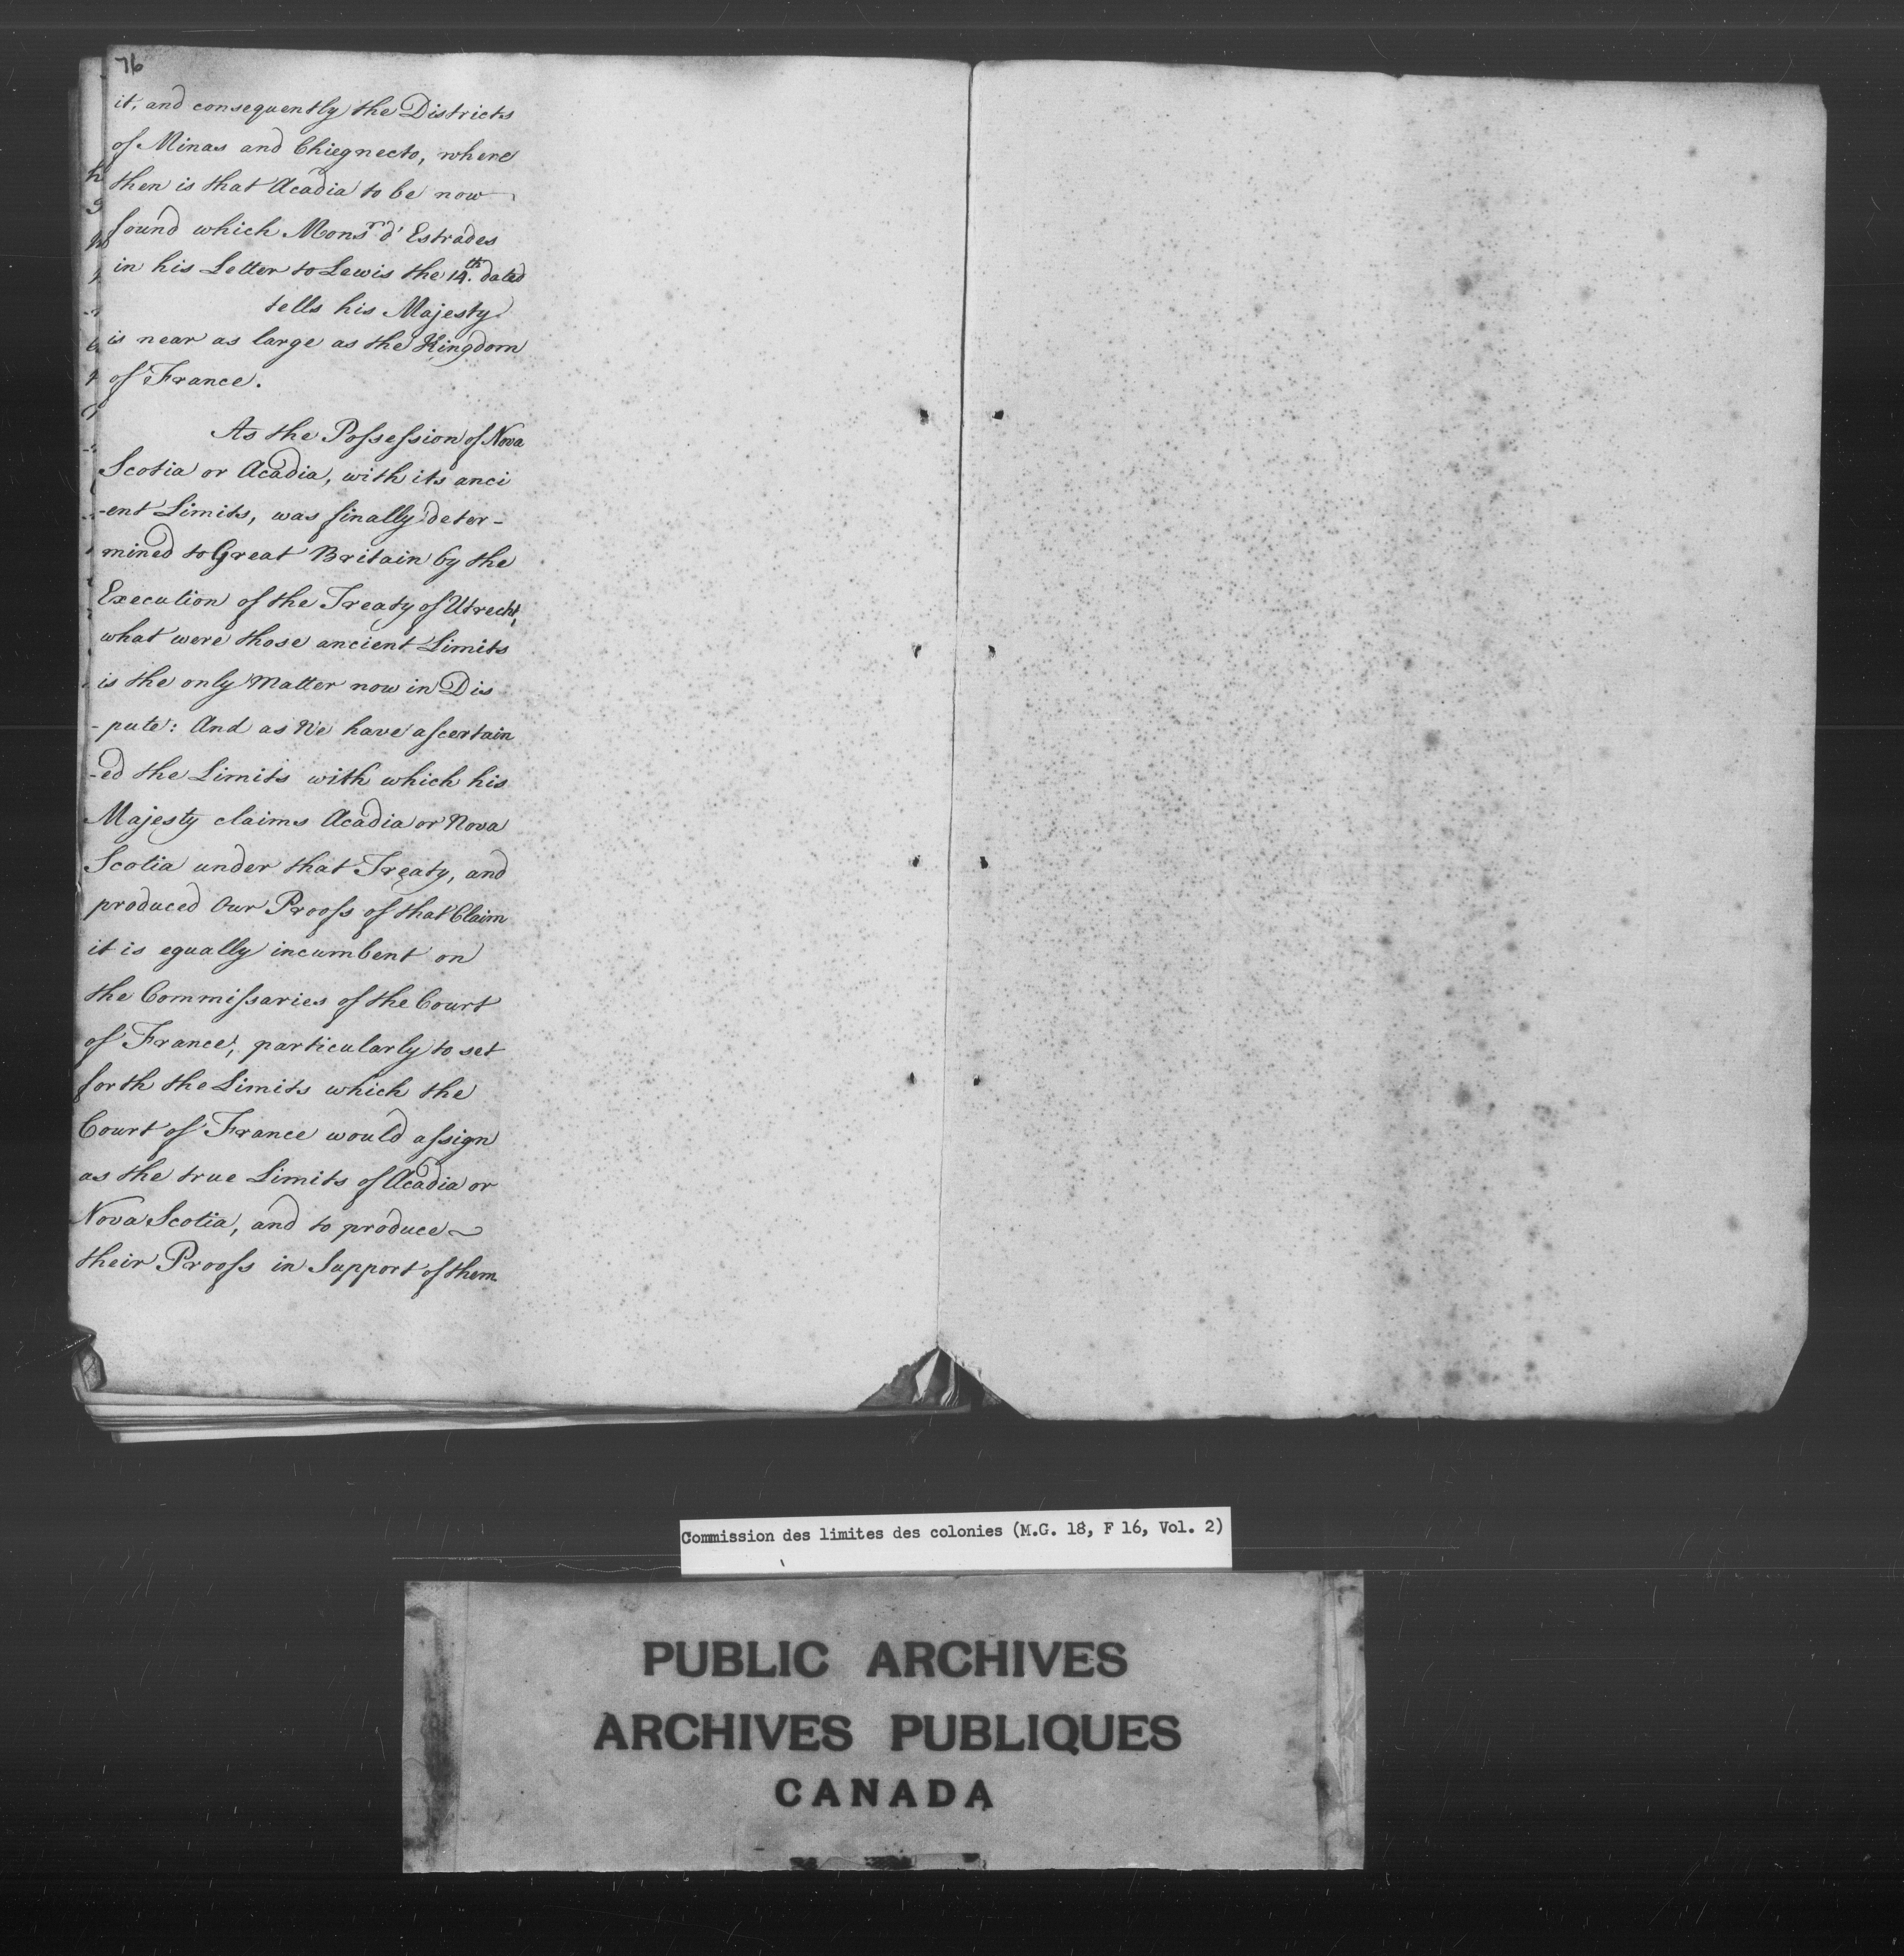 76
it, and consequently the Districts
of Minas and Chiegnecto, where
then is that Acadia to be now
found which Monsr. d'Estrades
in his Letter to Lewis the 14.th dated
tells his Majesty
is near as large as the Kingdom
of France.
As the Possession of Nova
Scotia or Acadia, with its anci
-ent Limits, was finally deter-
mined to Great Britain by the
Execution of the Treaty of Utrecht,
what were those ancient Limits
is the only Matter now in Dis
-pute: And as We have ascertain
-ed the Limits with which his
Majesty claims Acadia or Nova
Scotia under that Treaty, and
produced Our Proofs of that Claim
it is equally incumbent on
the Commissaries of the Court
of France, particularly to set
forth the Limits which the
Court of France would assign
as the true Limits of Acadia or
Nova Scotia, and to produce
their Proofs in Support of them.
Commission des limites des colonies (M.G. 18, F 16, Vol. 2)
PUBLIC ARCHIVES
ARCHIVES PUBLIQUES
CANADA